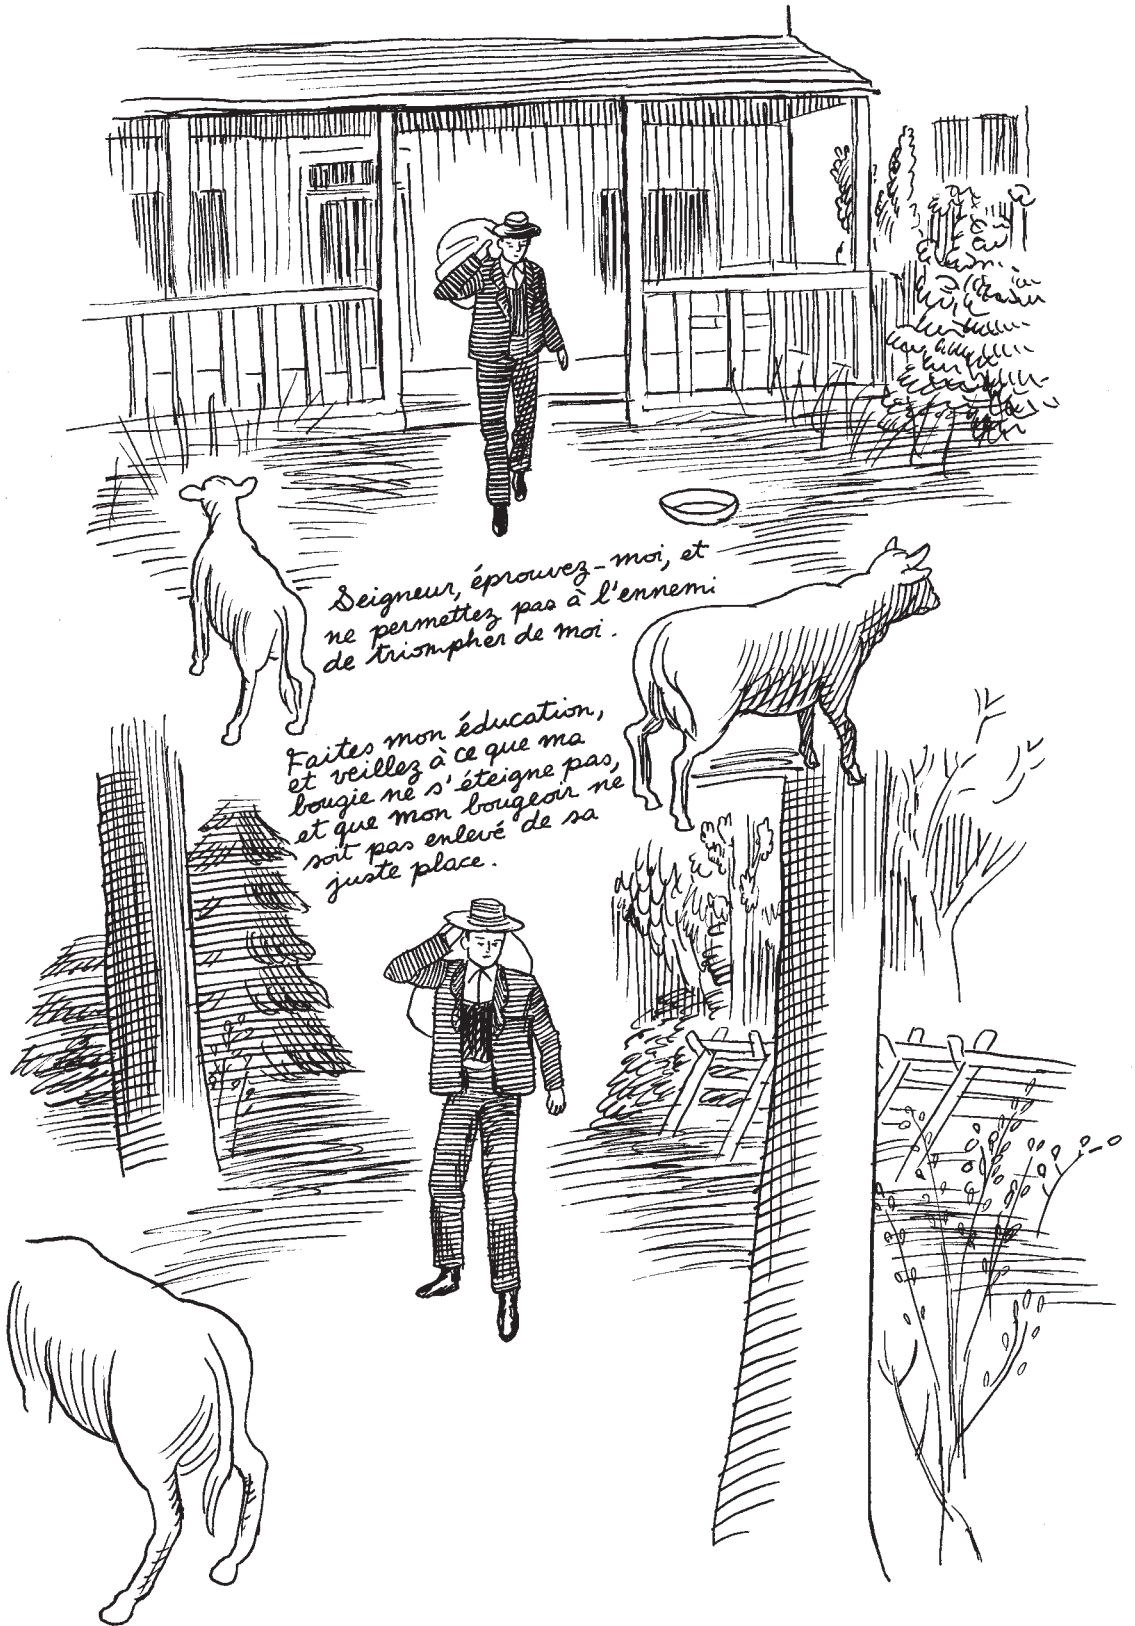 Seigneur, éprouvez-moi, et
ne permettez pas à l'ennemi
de triompher de moi.
Faites mon éducation,
et veillez à ce que ma
bougie ne s'éteigne pas,
et que mon bougeoir ne
soit pas enlevé de sa
juste place.